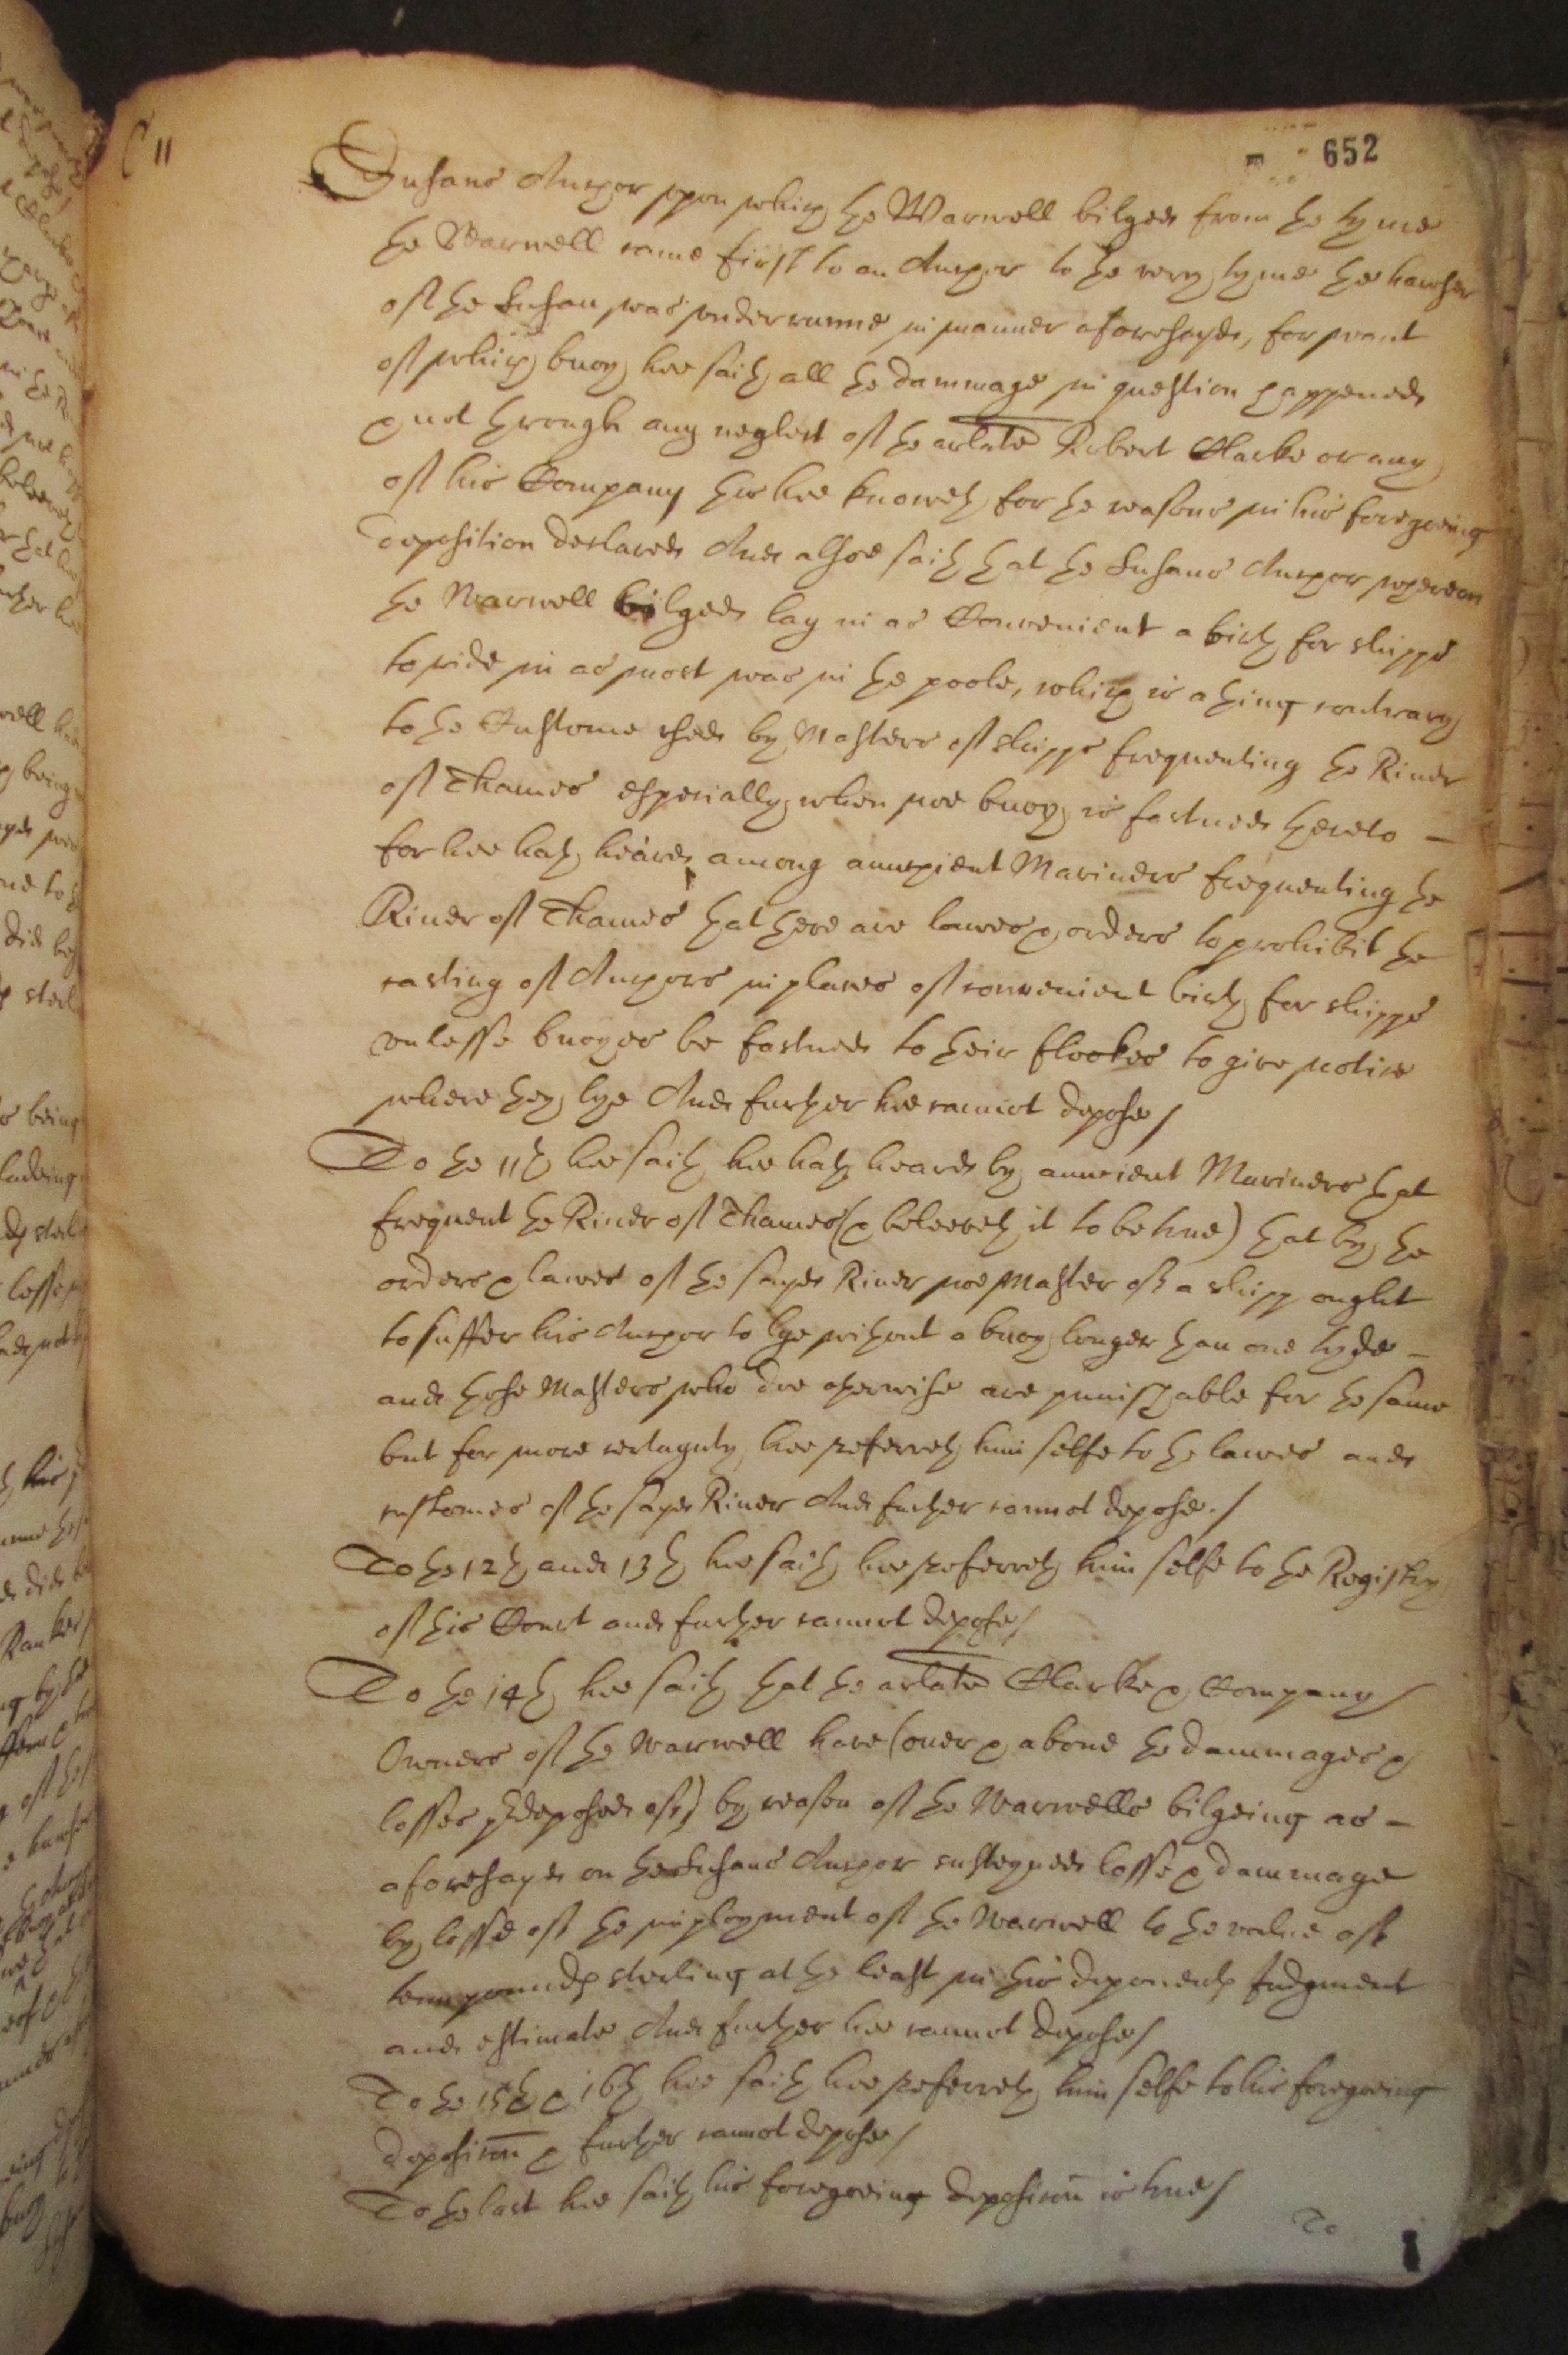 652
Susans Anchor upon which the Warwell bilged from the tyme
the Warwell came first to an Anchor to the very tyme the hawser
of the Susan was underrunne in manner aforesayd, for want
of which buoy hee saith all the dammage in question happened
& not through any neglect of the arlate Robert Clarke or any
of his Company this hee knoweth for the reasons in his foregoeing
deposition declared And alsoe saith that the Susans Anchor whereon
the Warwell bilged lay in as Convenient a birth for shipps
to ride in as most was in the poole, which is a thing contrary
to the Custome used by Masters of shipps frequenting the River
of Thames especially when noe buoy is fastned thereto -
for hee hath heard among auncient Mariners frequenting the
River of Thames that there are lawes & orders to prohibit the
casting of Anchors in places of convenient birth for shipps
unlesse buoyes be fastned to their flookes to give notice
where they lye And further hee cannot depose/
To the 11th hee saith hee hath heard by auncient Mariners that
frequent the River of Thames (& beleeveth it to be true) that by the
orders & lawes of the sayd River noe Master of a shipp ought
to suffer his Anchor to lye without a buoy longer than one tyde -
and those Masters who doe otherwise are punishable for the same
but for more certaynty hee referreth him selfe to the lawes and
customes of the sayd River And further cannot depose./
To the 12th and 13th hee saith hee referreth him selfe to the Registry
of this Court and further cannot depose/
To the 14th hee saith that the arlate Clarke & Company
Owners of the Warwell have (over & above the dammages &
losses predeposed of) by reason of the Warwells bilgeing as -
aforesayd on the Susans Anchor susteyned losse & dammage
by losse of the imployment of the Warwell to the value of
tenn pounds sterling at the least in this deponents Judgment
and estimate And further hee cannot depose/
To the 15th & 16th hee saith hee referreth him selfe to his foregoeing
deposicon & further cannot depose/
To the last hee saith his foregoeing deposicon is true/
To